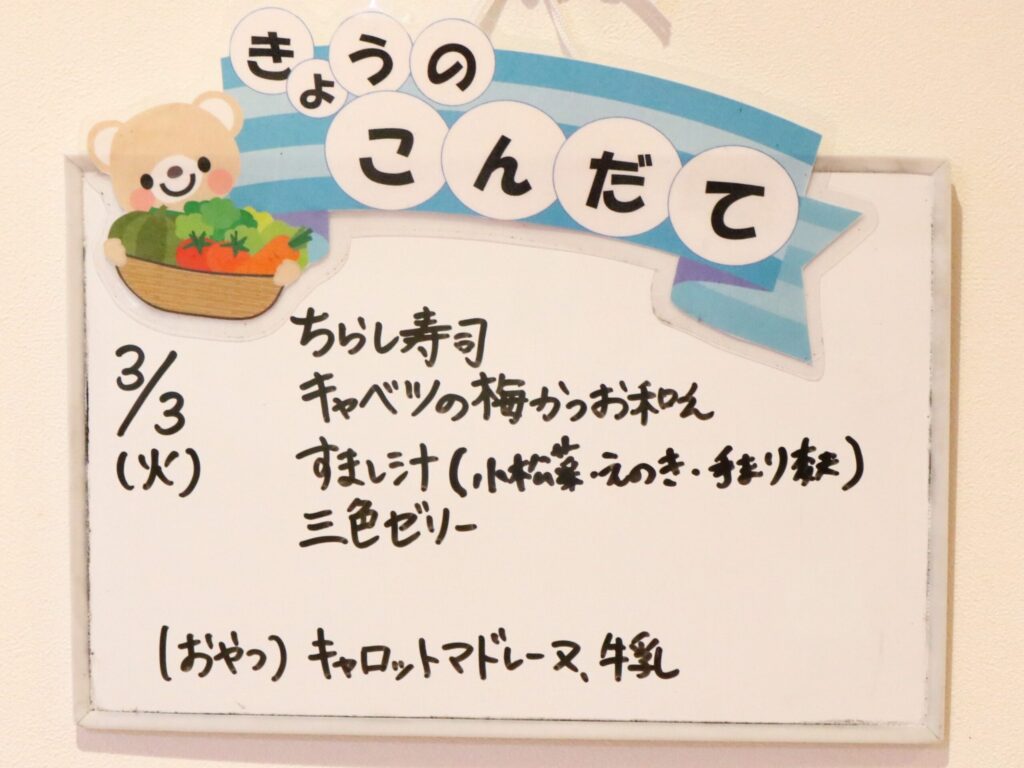 きょうの
こんだて
3/3
(火)
ちらし寿司
キャベツの梅かつお和え
すまし汁(小松菜・えのき・手まり麩)
三色ゼリー
(おやつ) キャロットマドレーヌ、牛乳